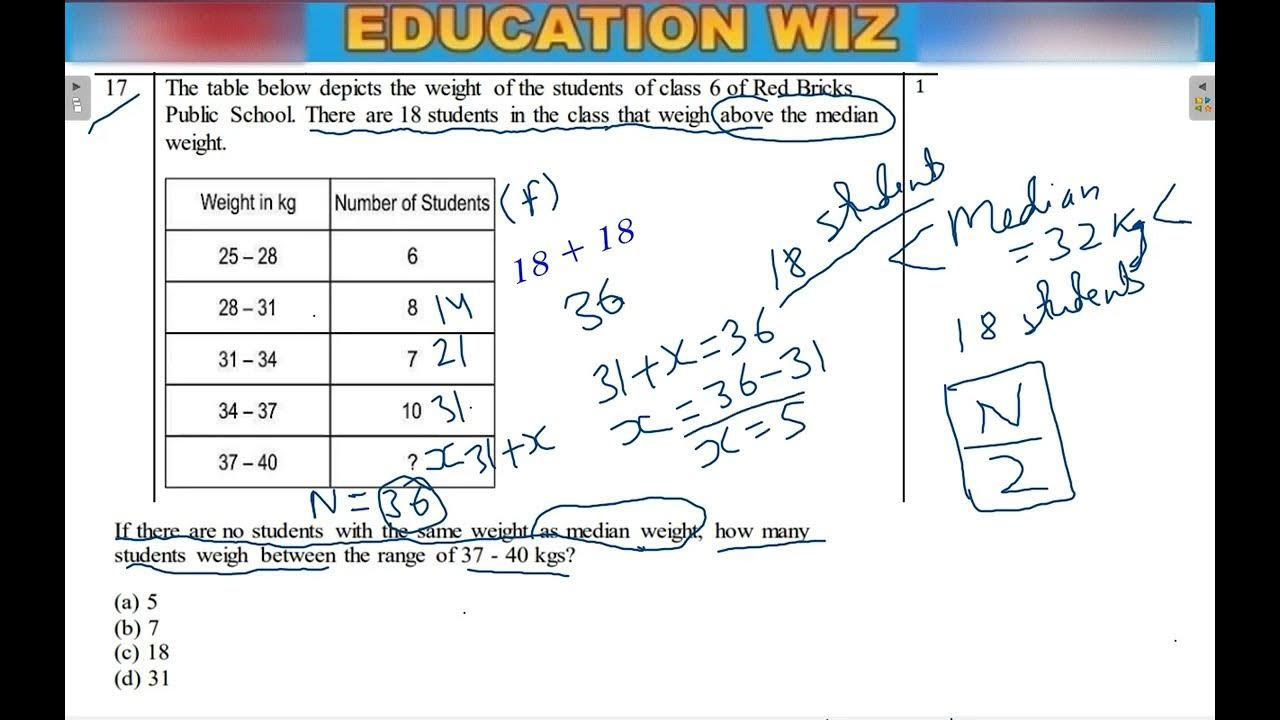 EDUCATION WIZ
17 The table below depicts the weight of the students of class 6 of Red Bricks 1
Public School. There are 18 students in the class that weigh above the median
weight.
Weight in kg Number of Students (f)
25 – 28 6
28 – 31 8 14
31 – 34 7 21
34 – 37 10 31
37 – 40 ? x 31+x
N = 36
18 + 18
36
31+x=36
x = 36-31
x = 5
18 students
< Median <
= 32 kg
18 students
N
2
If there are no students with the same weight as median weight, how many
students weigh between the range of 37 - 40 kgs?
(a) 5
(b) 7
(c) 18
(d) 31